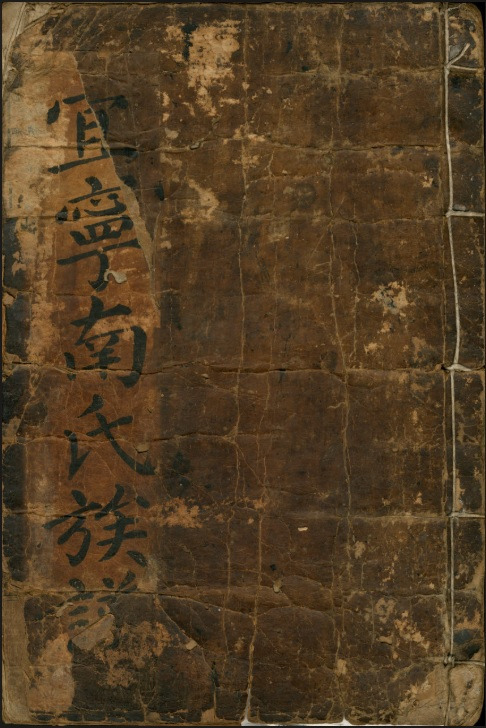 宜寧南氏族譜